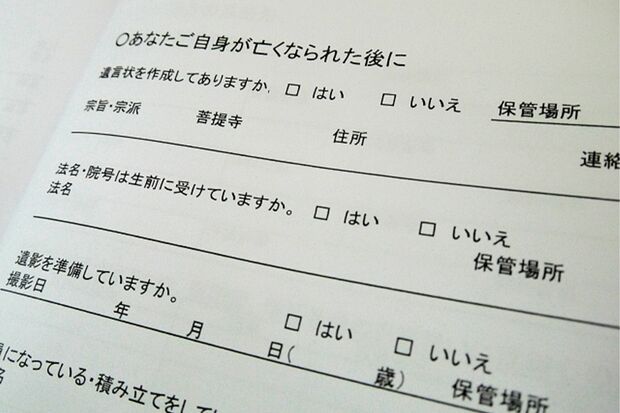 ○あなたご自身が亡くなられた後に
遺言状を作成してありますか。 □ はい □ いいえ 保管場所
宗旨・宗派 菩提寺 住所 連絡
法名・院号は生前に受けていますか。 □ はい □ いいえ
法名 保管場所
遺影を準備していますか。 □ はい □ いいえ
撮影日 年 月 日( 歳) 保管場所
になっている・積み立てをして